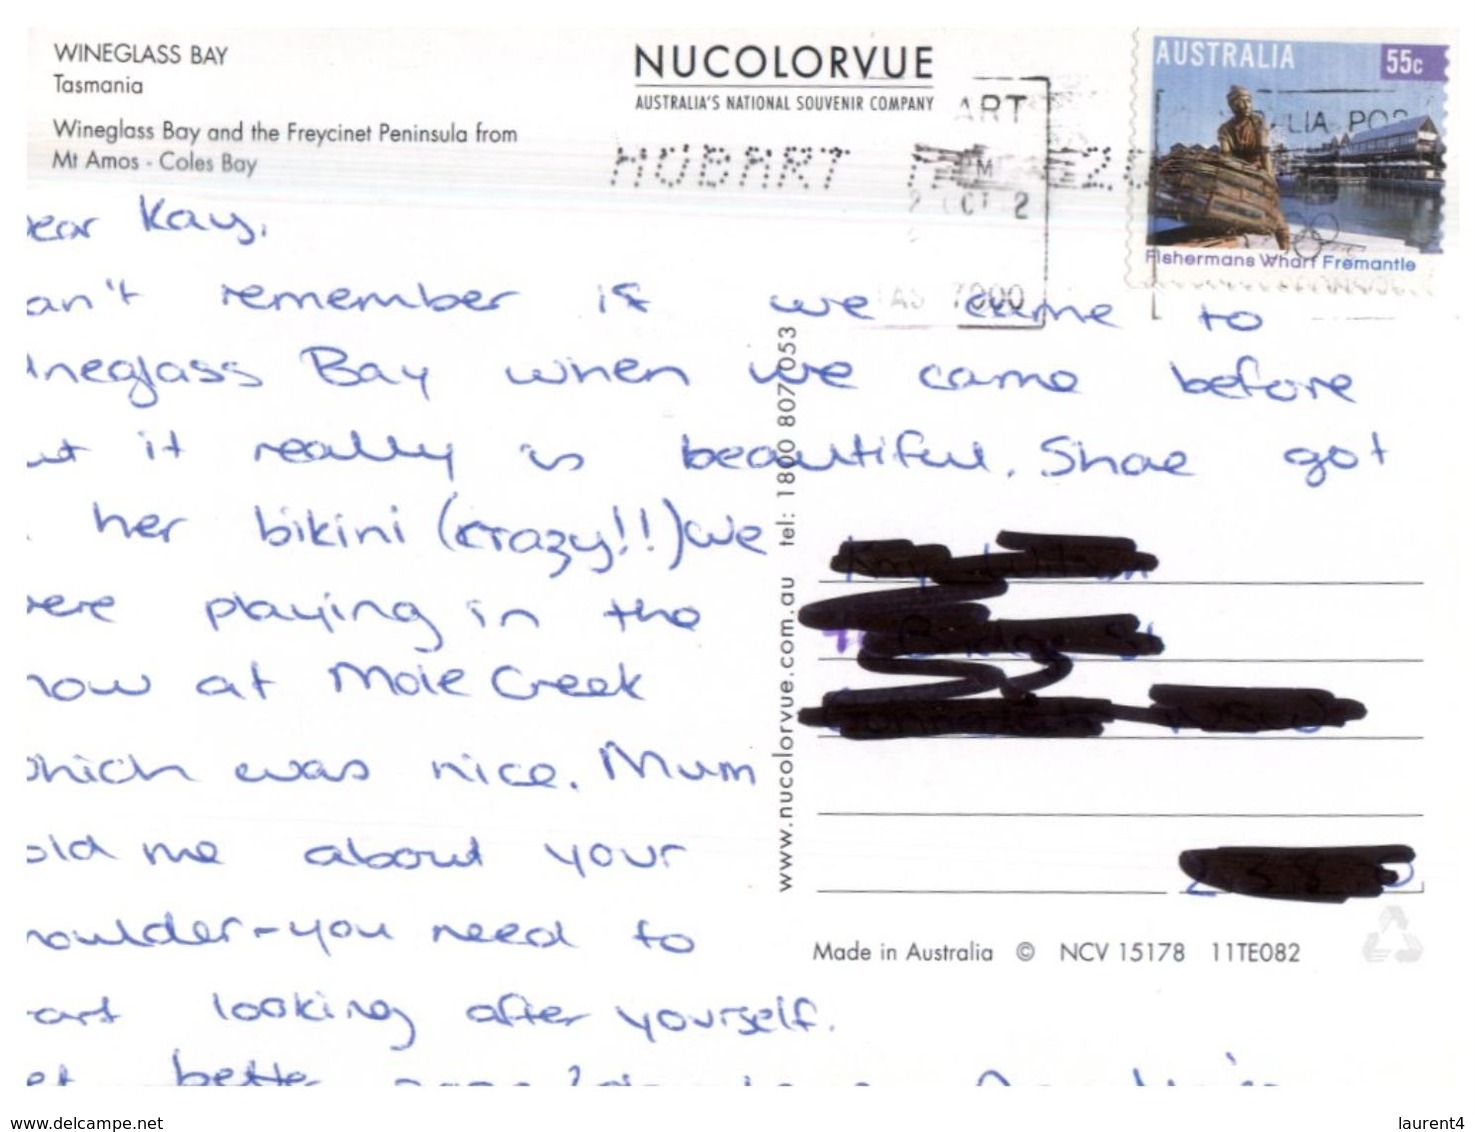 WINEGLASS BAY
Tasmania
Wineglass Bay and the Freycinet Peninsula from
Mt Amos - Coles Bay
NUCOLORVUE
AUSTRALIA'S NATIONAL SOUVENIR COMPANY
AUSTRALIA 55c
Fishermans Wharf Fremantle
HOBART
ART
PM
2 OCT 2
TAS 7000
ALIA POS
ear Kay,
an't remember if we came to
ineglass Bay when we came before
ut it really is beautiful. Shae got
her bikini (crazy!!) We
ere playing in the
now at Mole Creek
hich was nice. Mum
old me about your
houlder - you need to
art looking after yourself.
et better
www.nucolorvue.com.au tel: 1800 807 053
Made in Australia © NCV 15178 11TE082
www.delcampe.net
laurent4